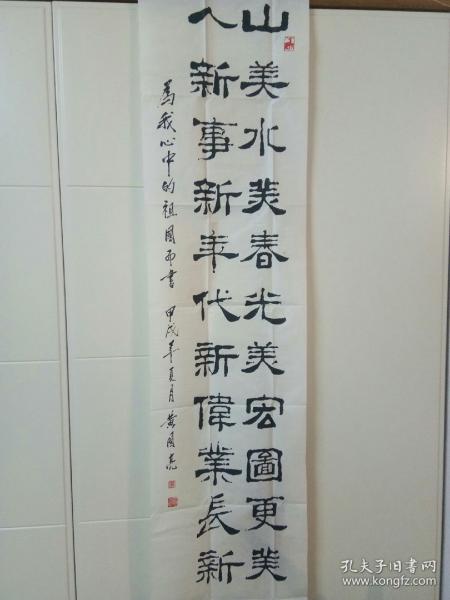 山美水美春光美宏圖更美
人新事新年代新偉業長新
為我心中的祖國而書 甲戌年夏月 黃國亮
孔夫子旧书网
www.kongfz.com